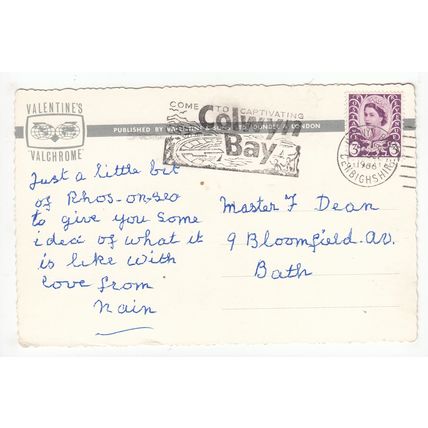 VALENTINE'S
"VALCHROME"
PUBLISHED BY VALENTINE & SONS LTD DUNDEE & LONDON
COME TO CAPTIVATING
Colwyn
Bay
1966
DENBIGHSHIRE
3D
Just a little bit
of Rhos-on-sea
to give you some
idea of what it
is like with
love from
Nain
Master F Dean
9 Bloomfield. Av.
Bath